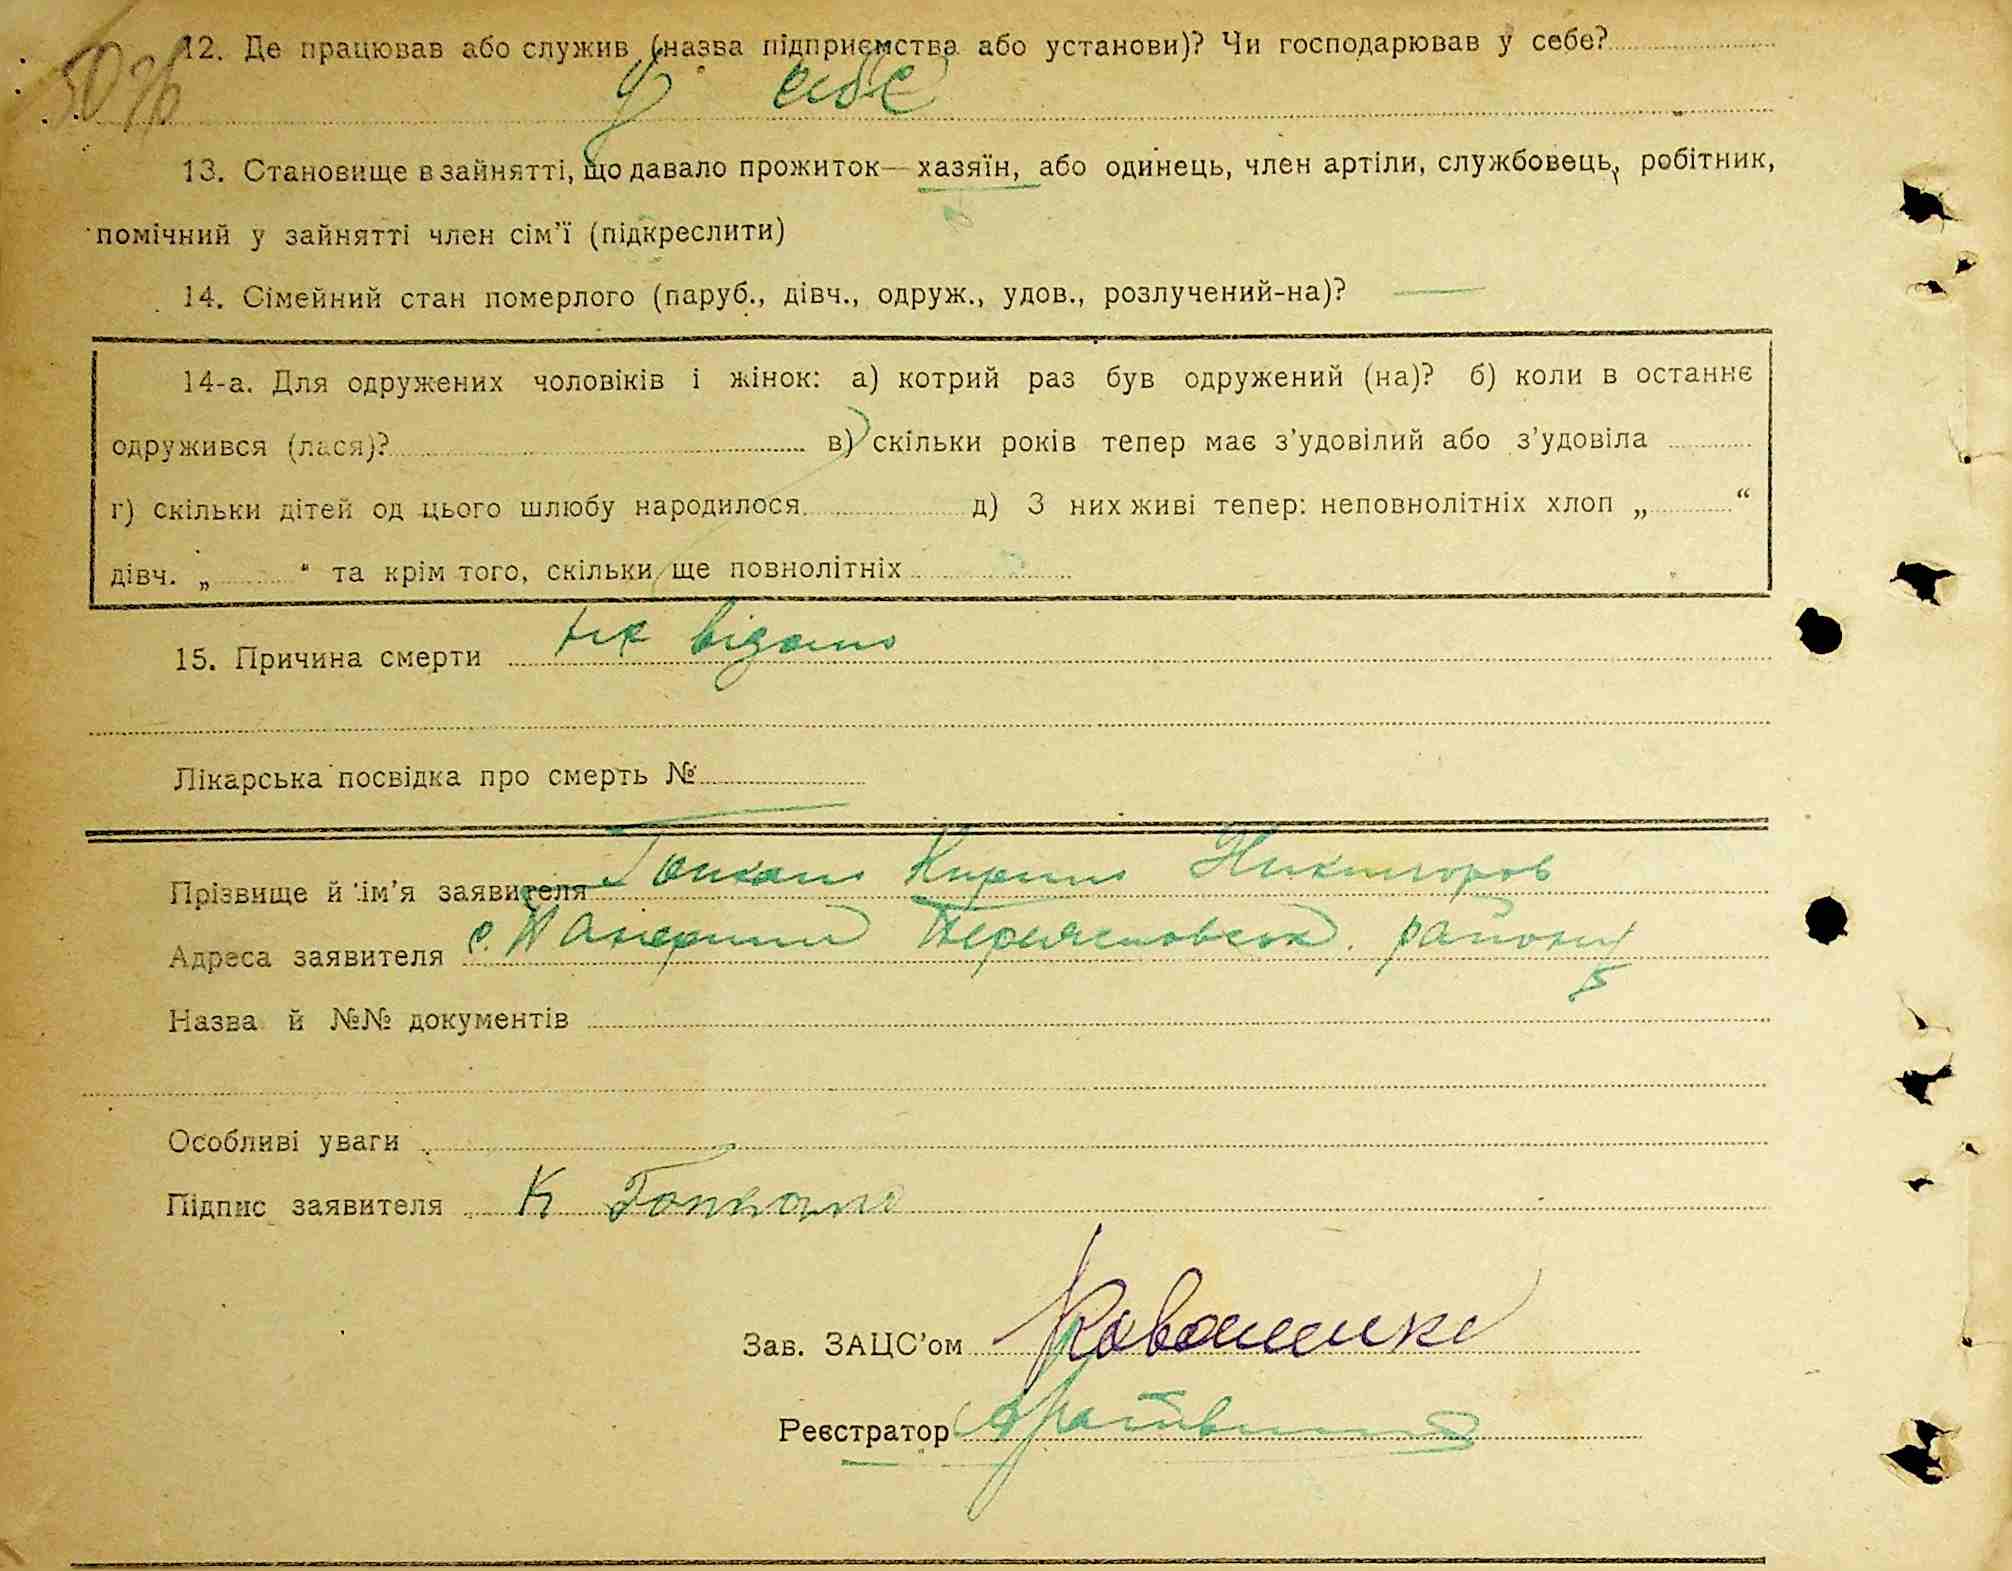 12. Де працював або служив (назва підприємства або установи)? Чи господарював у себе?
у себе
13. Становище в зайнятті, що давало прожиток—хазяїн, або одинець, член артіли, службовець, робітник,
помічний у зайнятті член сім'ї (підкреслити)
14. Сімейний стан померлого (паруб., дівч., одруж., удов., розлучений-на)? —
14-а. Для одружених чоловіків і жінок: а) котрий раз був одружений (на)? б) коли в останнє
одружився (лася)? в) скільки років тепер має з'удовілий або з'удовіла
г) скільки дітей од цього шлюбу народилося д) З них живі тепер: неповнолітніх хлоп „ “
дівч. „ “ та крім того, скільки ще повнолітніх
15. Причина смерти не відомо
Лікарська посвідка про смерть №
Прізвище й ім'я заявителя Кирило Никифоров
Адреса заявителя с. району
Назва й №№ документів
Особливі уваги
Підпис заявителя К
Зав. ЗАЦС'ом
Реєстратор